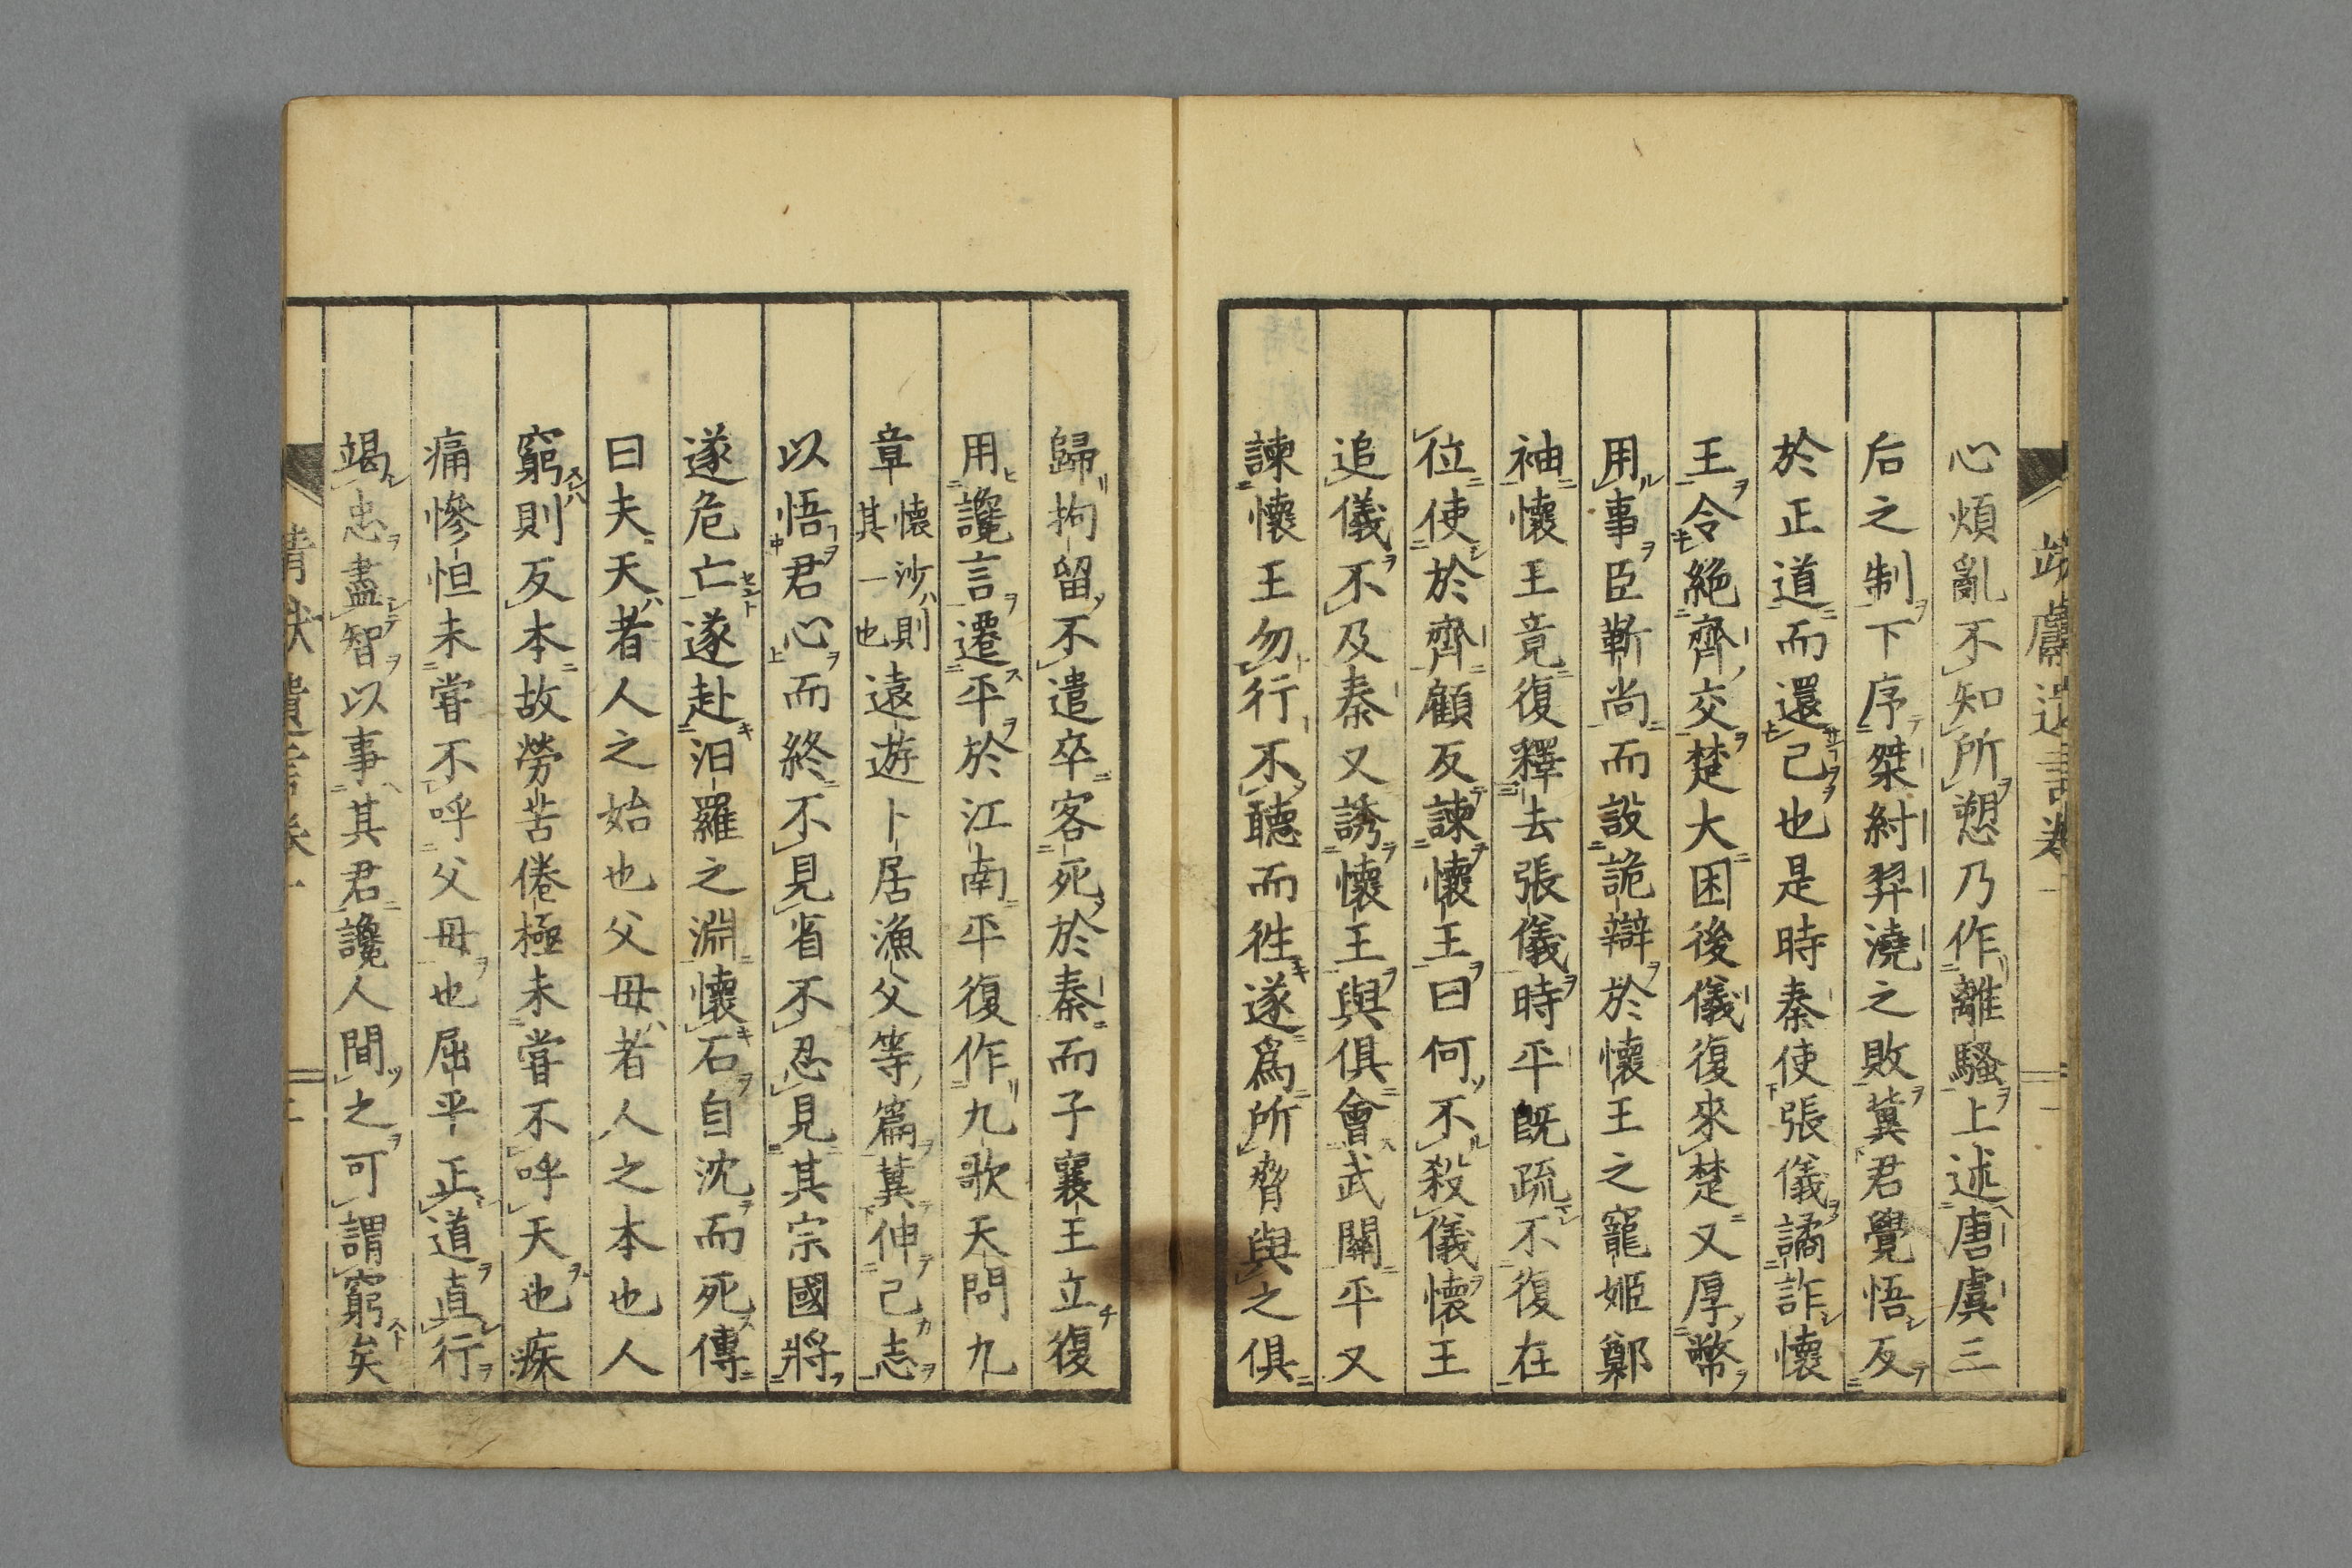 心煩亂不知所愬乃作離騷上述唐虞三
后之制下序桀紂羿澆之敗冀君覺悟反
於正道而還己也是時秦使張儀譎詐懷
王令絕齊交楚大困後儀復來楚又厚幣
用事臣靳尚而設詭辯於懷王之寵姬鄭
袖懷王竟復釋去張儀時平既疏不復在
位使於齊顧反諫懷王曰何不殺儀懷王
追儀不及秦又誘懷王與俱會武關平又
諫懷王勿行不聽而徃遂爲所脅與之俱
歸拘留不遣卒客死於秦而子襄王立復
用讒言遷平於江南平復作九歌天問九
章懷沙則其一也遠遊卜居漁父等篇冀伸己志
以悟君心而終不見省不忍見其宗國將
遂危亡遂赴汨羅之淵懷石自沈而死傳
曰夫天者人之始也父母者人之本也人
窮則反本故勞苦倦極未嘗不呼天也疾
痛慘怛未嘗不呼父母也屈平正道直行
竭忠盡智以事其君讒人間之可謂窮矣